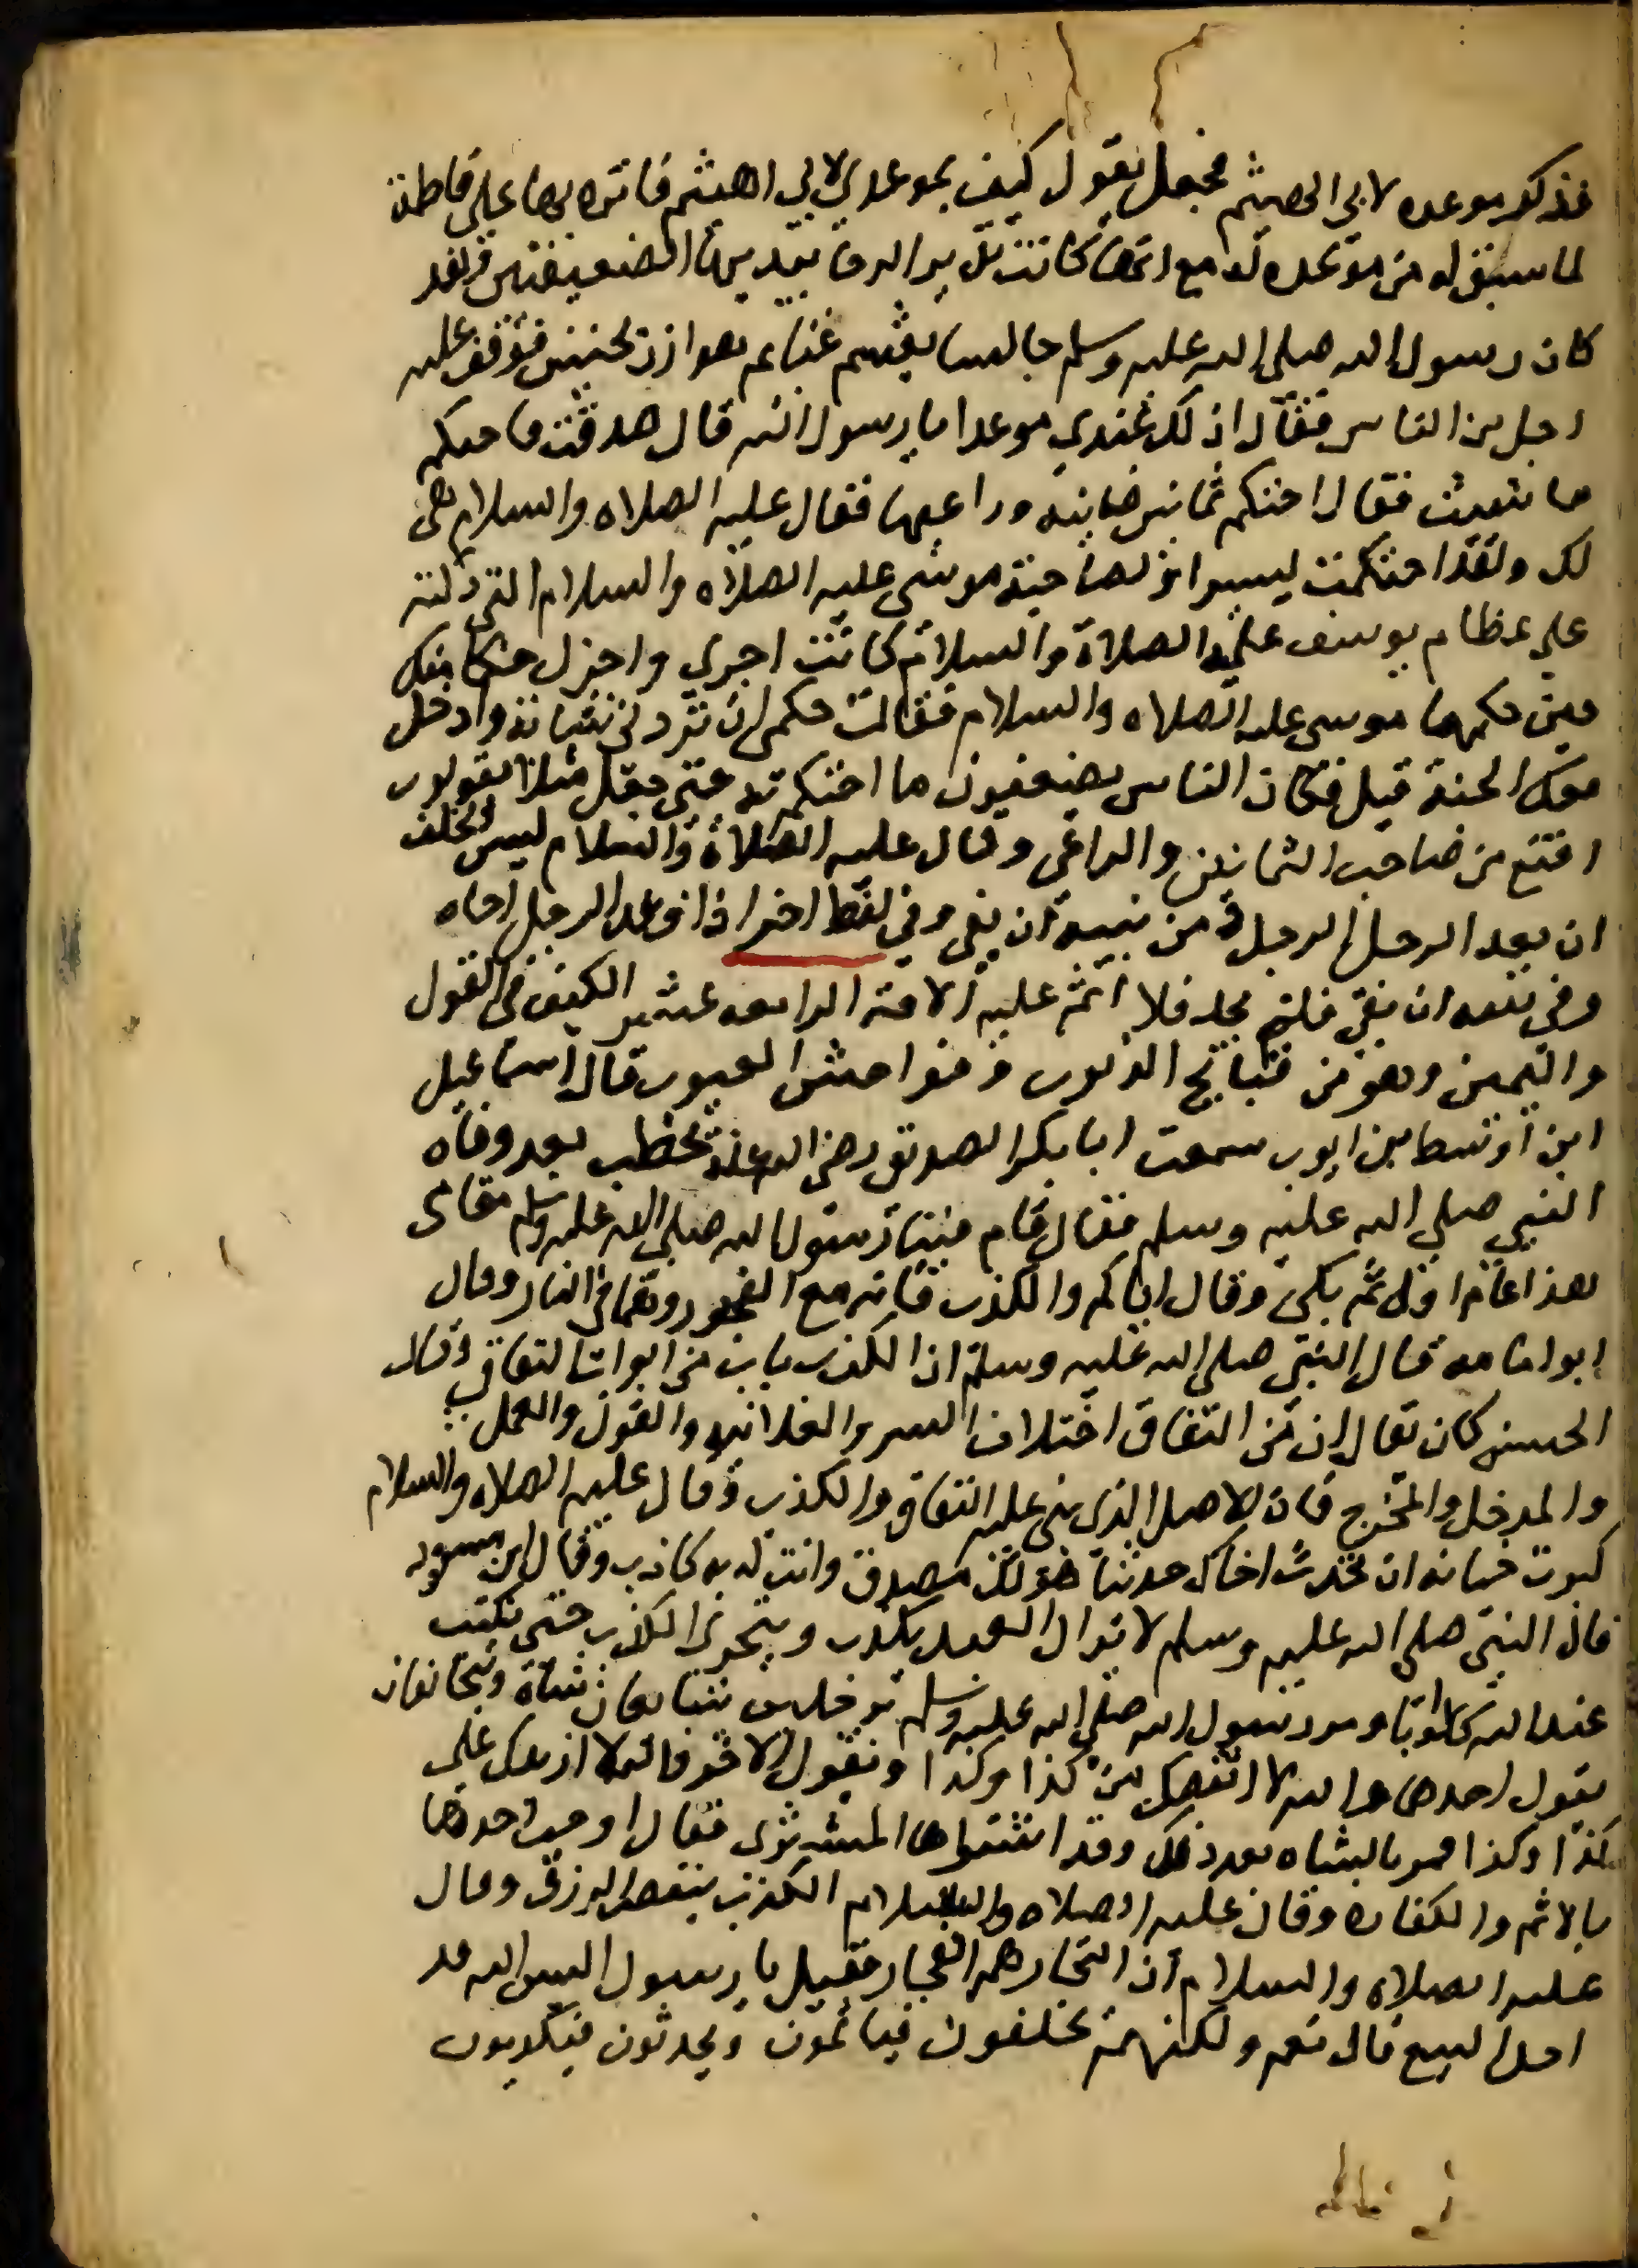 فذكر موعده لابي الهيثم فجعل يقول كيف بموعدي لابي الهيثم فاثره بها على فاطمة
لما سبق له من موعده له مع انها كانت تدير الرحا بيديها الضعيفتين ولقد
كان رسول الله صلى الله عليه وسلم جالسا يقسم غنايم هوازن بحنين فوقف عليه
رجل من الناس فقال ان لك عندي موعدا يا رسول الله قال صدقت فاحتكم
ما شيت فقال احتكم ثمانين ضانية وراعيها فقال عليه الصلاه والسلام هي
لك ولقد احتكمت يسيرا ولصاحبة موسى عليه الصلاه والسلام التي دلته
على عظام يوسف عليه الصلاة والسلام كانت احرى واجزل حكما منك
حين حكمها موسى عليه الصلاه والسلام فقالت حكمي ان تردني شابة وادخل
معك الجنة قيل فكان الناس يضعفون ما احتكم به حتى جعل مثلا يقولون
اقنع من صاحب الثمانين والراعي وقال عليه الصلاة والسلام ليس الخلف
ان يعد الرجل الرجل ومن نيته ان يفي وفي لفظ اخر اذا وعد الرجل اخاه
وفي نيته ان يفي فلم يجد فلا اثم عليه الافة الرابعه عشر الكذب في القول
واليمين وهو من قبائح الذنوب وفواحش العيوب قال اسماعيل
ابن اوسط بن ايوب سمعت ابا بكر الصديق رضي الله عنه يخطب بعد وفاه
النبي صلى الله عليه وسلم فقال قام فينا رسول الله صلى الله عليه وسلم مقامي
هذا عام اول ثم بكى وقال اياكم والكذب فانه مع الفجور وهما في النار وقال
ابو امامه قال النبي صلى الله عليه وسلم ان الكذب باب من ابواب النفاق وقال
الحسن كان يقال ان من النفاق اختلاف السر والعلانيه والقول والعمل
والمدخل والمخرج فان الاصل الذي بني عليه النفاق والكذب وقال عليه الصلاه والسلام
كبرت خيانه ان تحدث اخاك حديثا هو لك مصدق وانت له به كاذب وقال ابن مسعود
قال النبي صلى الله عليه وسلم لا يزال العبد يكذب ويتحرى الكذب حتى يكتب
عند الله كذابا ومر رسول الله صلى الله عليه وسلم برجلين يتبايعان شاة ويتحالفان
يقول احدهما والله لا انقصك من كذا وكذا ويقول الاخر والله لا ازيدك على
كذا وكذا فمر بالشاه بعد ذلك وقد اشتراها المشتري فقال اوجب احدهما
بالاثم والكفاره وقال عليه الصلاه والسلام الكذب ينقص الرزق وقال
عليه الصلاه والسلام ان التجار هم الفجار فقيل يا رسول اليس الله قد
احل البيع قال نعم ولكنهم يحلفون فياثمون ويحدثون فيكذبون